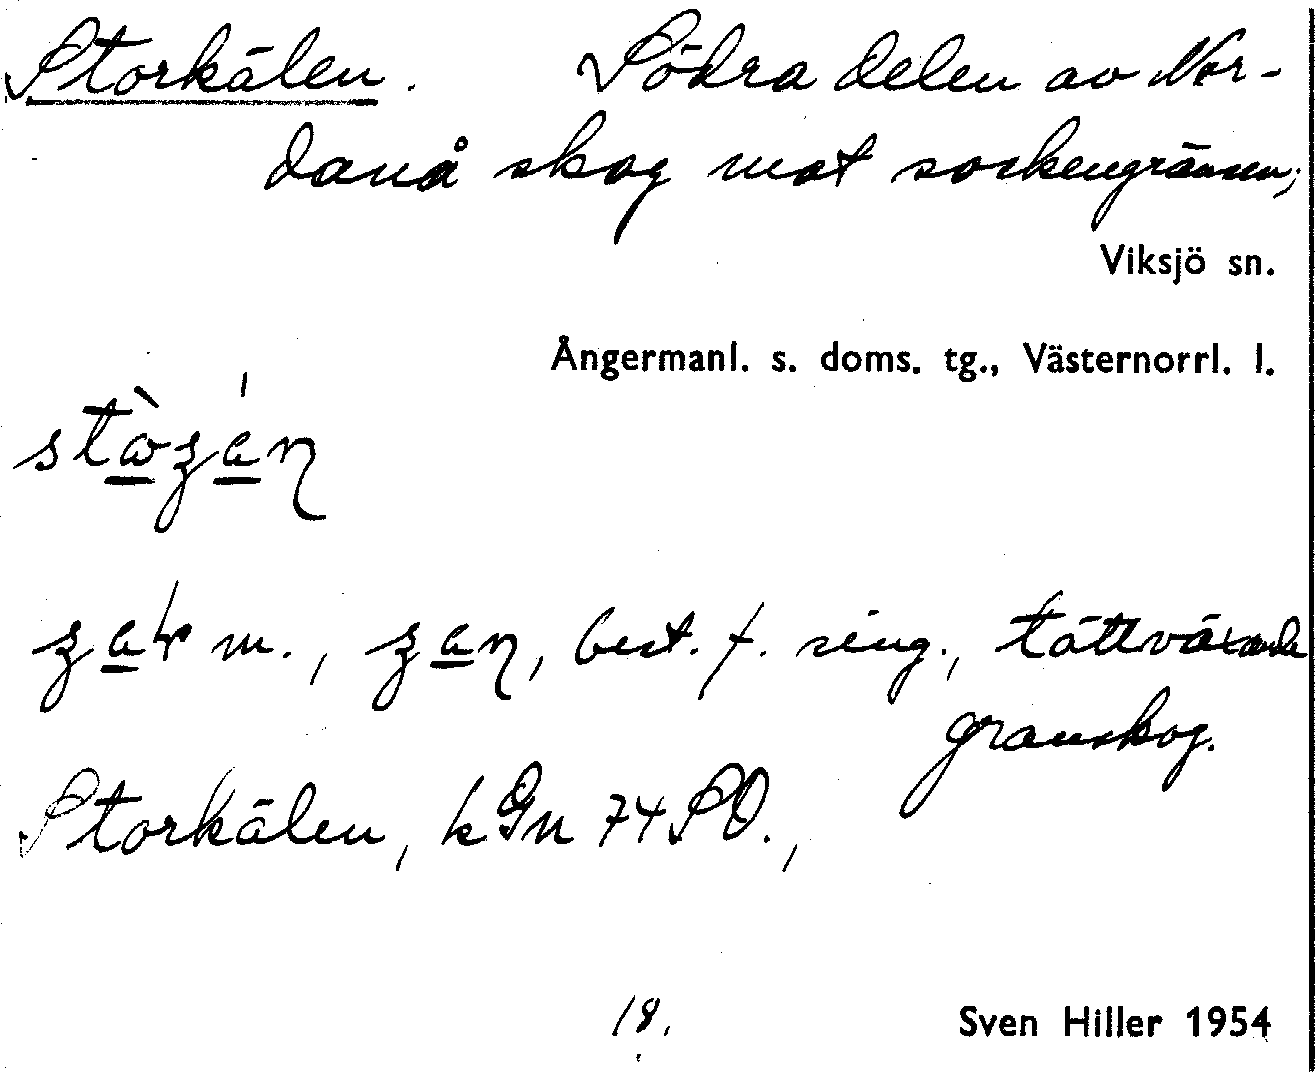 Storkälen. Södra delen av Nor-
danå skog mot sockengränsen;
Viksjö sn.
Ångermanl. s. doms. tg., Västernorrl. l.
m., best. f. sing., tättväxande
granskog.
Storkälen, k Gn 74 SO.,
18.
Sven Hiller 1954